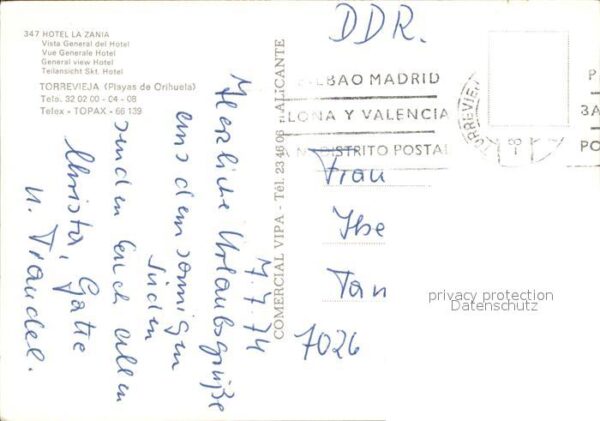 347 HOTEL LA ZANIA
Vista General del Hotel
Vue Generale Hotel
General view Hotel
Teilansicht Skt. Hotel
TORREVIEJA (Playas de Orihuela)
Tels. 32 02 00 - 04 - 08
Telex - TOPAX - 66 139
7.7.74
Herzliche Urlaubsgrüße
aus dem sonnigen
Süden
senden Euch allen
Christa,
u. Traudel.
COMERCIAL VIPA - Tél. 23 46 06 ALICANTE
DDR.
BILBAO MADRID
LONA Y VALENCIA
DISTRITO POSTAL
TORREVIEJ
P
3A
PO
Frau
Ilse
Tan
7026
privacy protection
Datenschutz